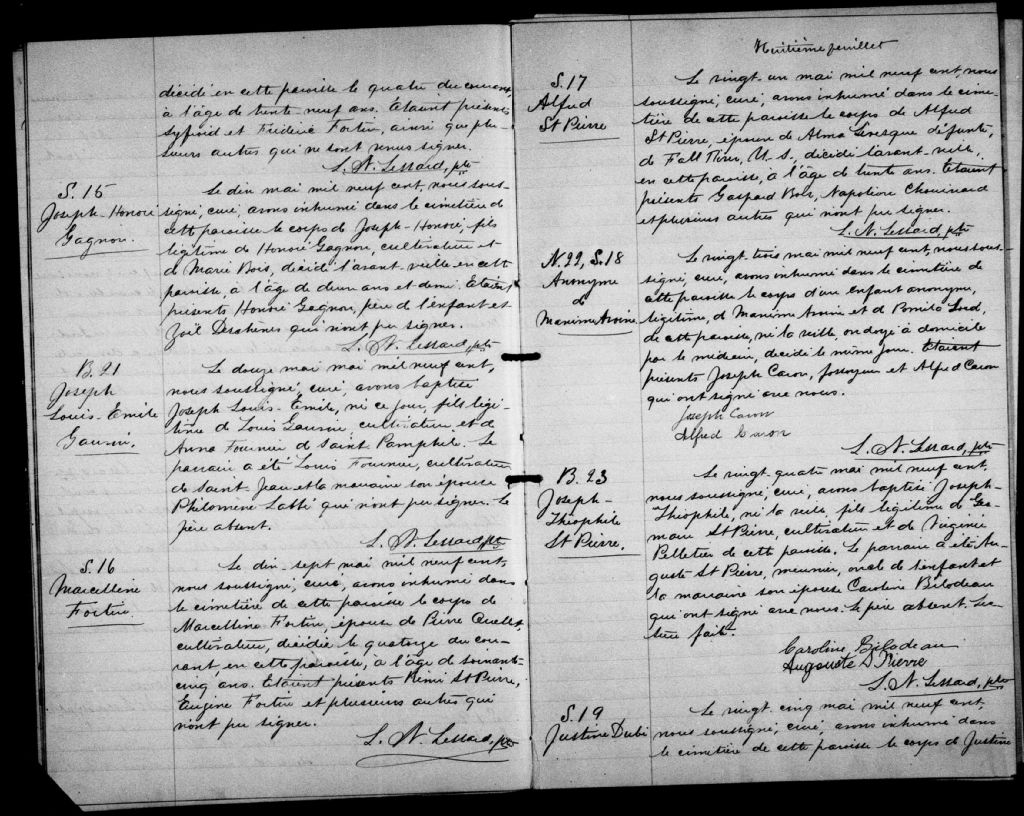 décédé en cette paroisse le quatre du courant
à l'âge de trente-neuf ans. Étaient présents
Syfroid et Frédéric Fortin, ainsi que plu-
sieurs autres qui ne sont venus signer.
L. N. Lessard, ptre
S. 15
Joseph-Honoré
Gagnon.
Le dix mai mil neuf cent, nous sous-
signé, curé, avons inhumé dans le cimetière de
cette paroisse le corps de Joseph-Honoré, fils
légitime de Honoré Gagnon, cultivateur et
de Marie Bois, décédé l'avant-veille en cette
paroisse, à l'âge de deux ans et demi. Étaient
présents Honoré Gagnon, père de l'enfant et
Zoël Deschènes qui n'ont pu signer.
L. N. Lessard, ptre
B. 21
Joseph
Louis-Emile
Le douze mai mai mil neuf cent,
nous soussigné, curé, avons baptisé
Joseph Louis-Emile, né ce jour, fils légi-
time de Louis cultivateur et de
Anna Fournier de Saint Pamphile. Le
parrain a été Louis Fournier, cultivateur
de Saint-Jean et la marraine son épouse
Philomène Labbé qui n'ont pu signer. Le
père absent.
L. N. Lessard, ptre
S. 16
Marcelline
Fortin
Le dix-sept mai mil neuf cent,
nous soussigné, curé, avons inhumé dans
le cimetière de cette paroisse le corps de
Marcelline Fortin, épouse de Pierre Ouellet,
cultivateur, décédée le quatorze du cou-
rant, en cette paroisse, à l'âge de soixante-
cinq ans. Étaient présents Rémi St Pierre,
Eugène Fortin et plusieurs autres qui
n'ont pu signer.
L. N. Lessard, ptre
Huitième feuillet
S. 17
Alfred
St Pierre
Le vingt-un mai mil neuf cent, nous
soussigné, curé, avons inhumé dans le cime-
tière de cette paroisse le corps de Alfred
St Pierre, époux de Alma Levesque défunte,
de Fall River, U. S., décédé l'avant-veille,
en cette paroisse, à l'âge de trente ans. Étaient
présents Gaspard Bois, Napoléon Chouinard
et plusieurs autres qui n'ont pu signer.
L. N. Lessard, ptre
N. 22, S. 18
Anonyme
de
Maxime Avoine
Le vingt-trois mai mil neuf cent, nous sous-
signé, curé, avons inhumé dans le cimetière de
cette paroisse le corps d'un enfant anonyme,
légitime, de Maxime Avoine et de Lord,
de cette paroisse, né la veille, ondoyé à domicile
par le médecin, décédé le même jour. Étaient
présents Joseph Caron, fossoyeur et Alfred Caron
qui ont signé avec nous.
Joseph Caron
Alfred Caron
L. N. Lessard, ptre
B. 23
Joseph-
Théophile
St Pierre.
Le vingt-quatre mai mil neuf cent,
nous soussigné, curé, avons baptisé Joseph-
Théophile, né la veille, fils légitime de Ge-
maire St Pierre, cultivateur et de Virginie
Pelletier de cette paroisse. Le parrain a été Au-
guste St Pierre, meunier, oncle de l'enfant et
la marraine son épouse Caroline Bilodeau
qui ont signé avec nous. Le père absent. Lec-
ture faite.
Caroline Bilodeau
Auguste St Pierre
L. N. Lessard, ptre
S. 19
Justine Dubé
Le vingt-cinq mai mil neuf cent,
nous soussigné, curé, avons inhumé dans
le cimetière de cette paroisse le corps de Justine